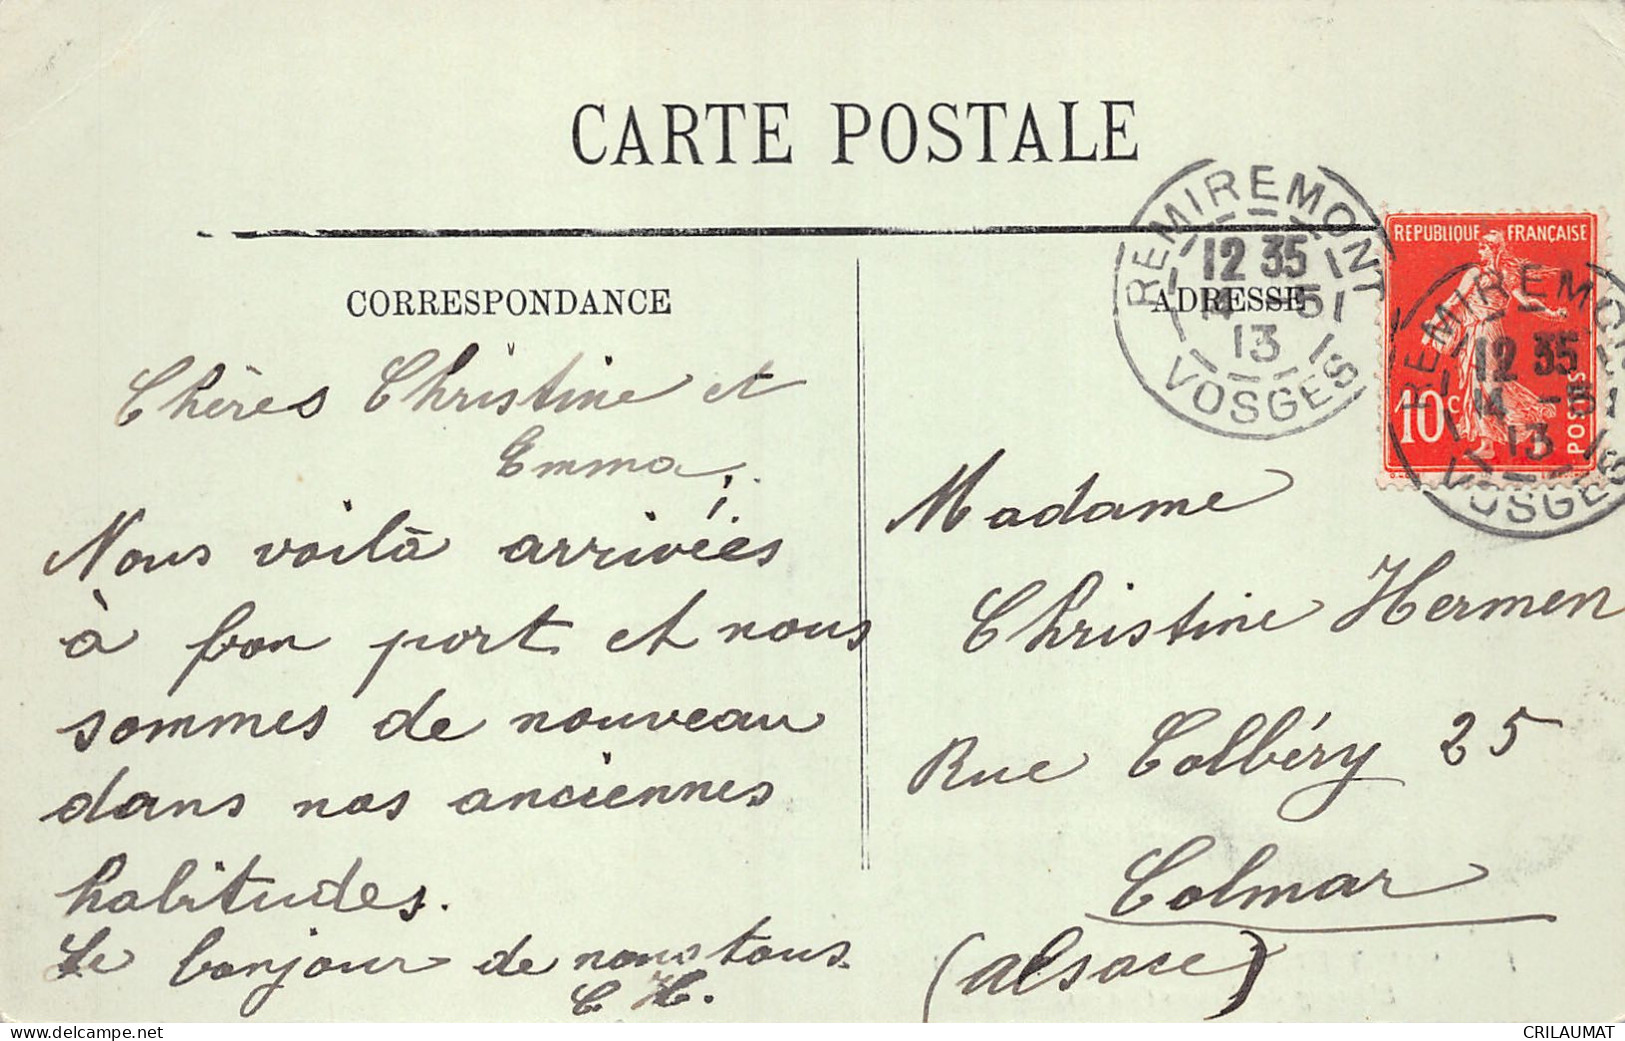 CARTE POSTALE
CORRESPONDANCE
Chères Christine et
Emma,
Nous voilà arrivées
à bon port et nous
sommes de nouveau
dans nos anciennes
habitudes.
Le bonjour de nous tous.
C. H.
ADRESSE
Madame
Christine Hermen
Rue Colbéry 25
Colmar
(Alsace)
REMIREMONT
12 35
14 -51
13
VOSGES
REPUBLIQUE FRANÇAISE
10c
POSTES
REMIREMONT
12 35
14 -51
13
VOSGES
www.delcampe.net
CRILAUMAT